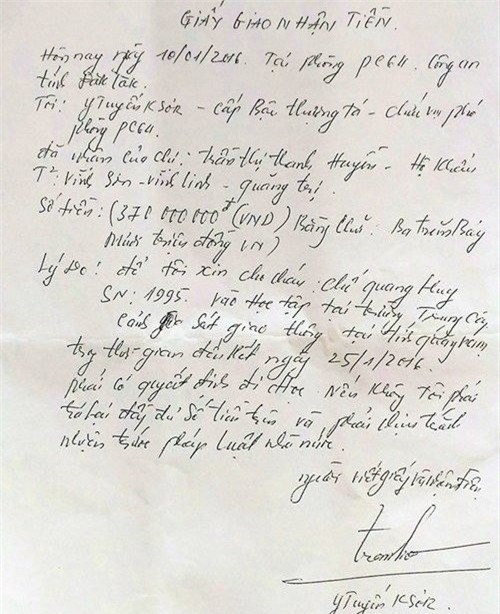 GIẤY GIAO NHẬN TIỀN.
Hôm nay ngày 10/01/2016. Tại phòng PC64. Công an
tỉnh Đắk Lắk.
Tôi: Y Tuyến KSơR - cấp Bậc thượng tá - chức vụ phó
phòng PC64.
đã nhận của chị: Trần thị thanh Huyền - Hộ Khẩu
T²: Vĩnh Sơn - Vĩnh Linh - quảng trị.
Số tiền: (370 000 000đ (VND) Bằng chữ: Ba Trăm Bảy
Mươi triệu đồng VN)
Lý Do: để tôi xin cho cháu: chế quang Huy
SN: 1995. vào Học tập tại trường Trung Cấp
Cảnh Sát giao thông tại
thời gian đến hết ngày 25/1/2016.
phải có quyết định đi Học. Nếu Không tôi phải
trả lại đầy đủ số tiền trên và phải chịu trách
nhiệm trước pháp luật nhà nước.
người viết giấy và nhận tiền
Y Tuyến KSơR.